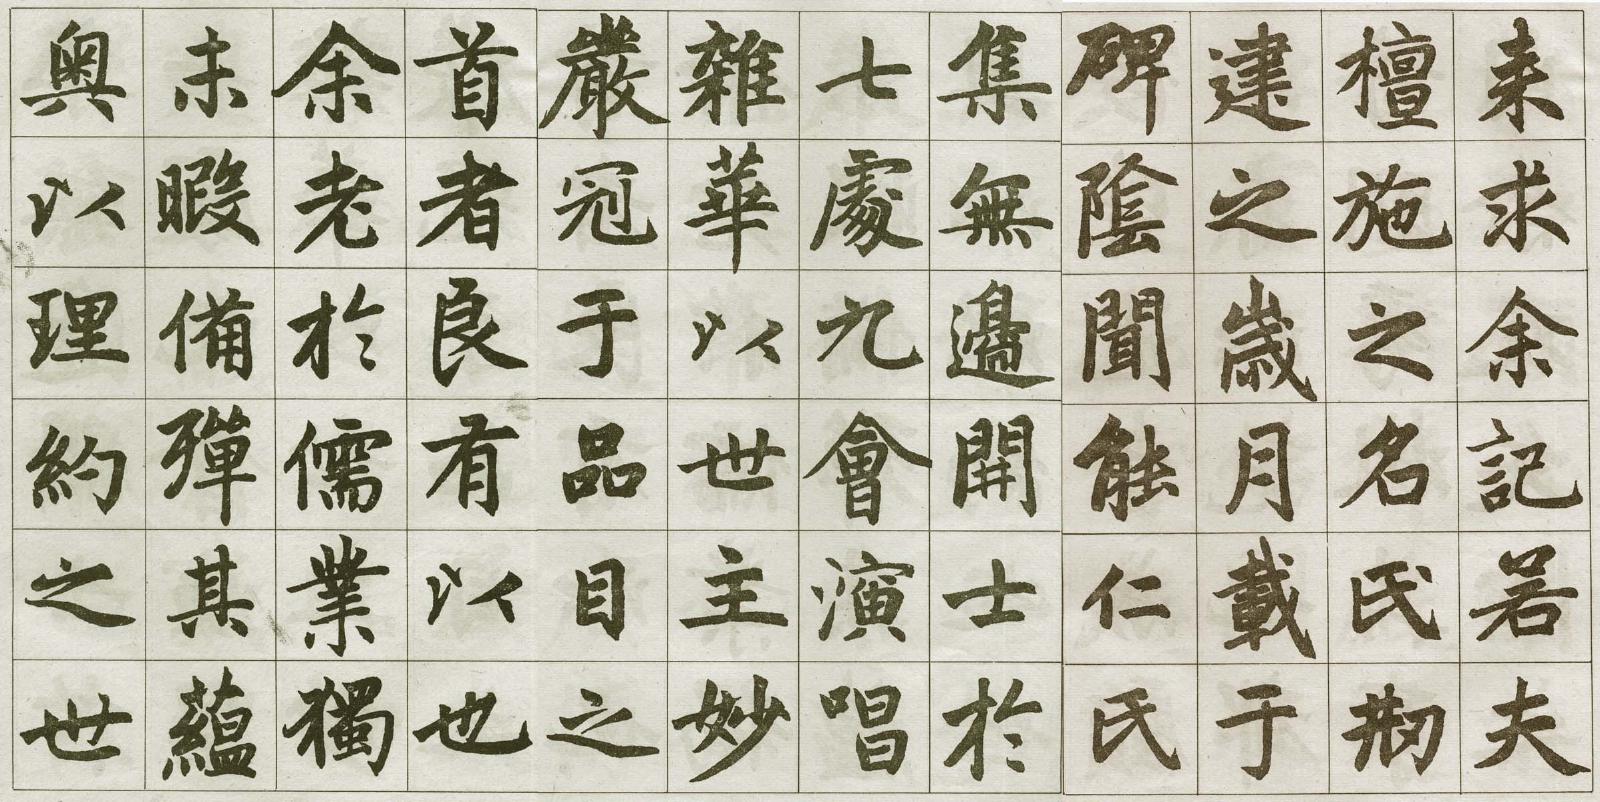 来求余記若夫
檀施之名氏剏
建之歲月載于
碑陰聞能仁氏
集無邊開士於
七處九會演唱
雜華以世主妙
嚴冠于品目之
首者良有以也
余老於儒業獨
未暇備殫其藴
奥以理約之世